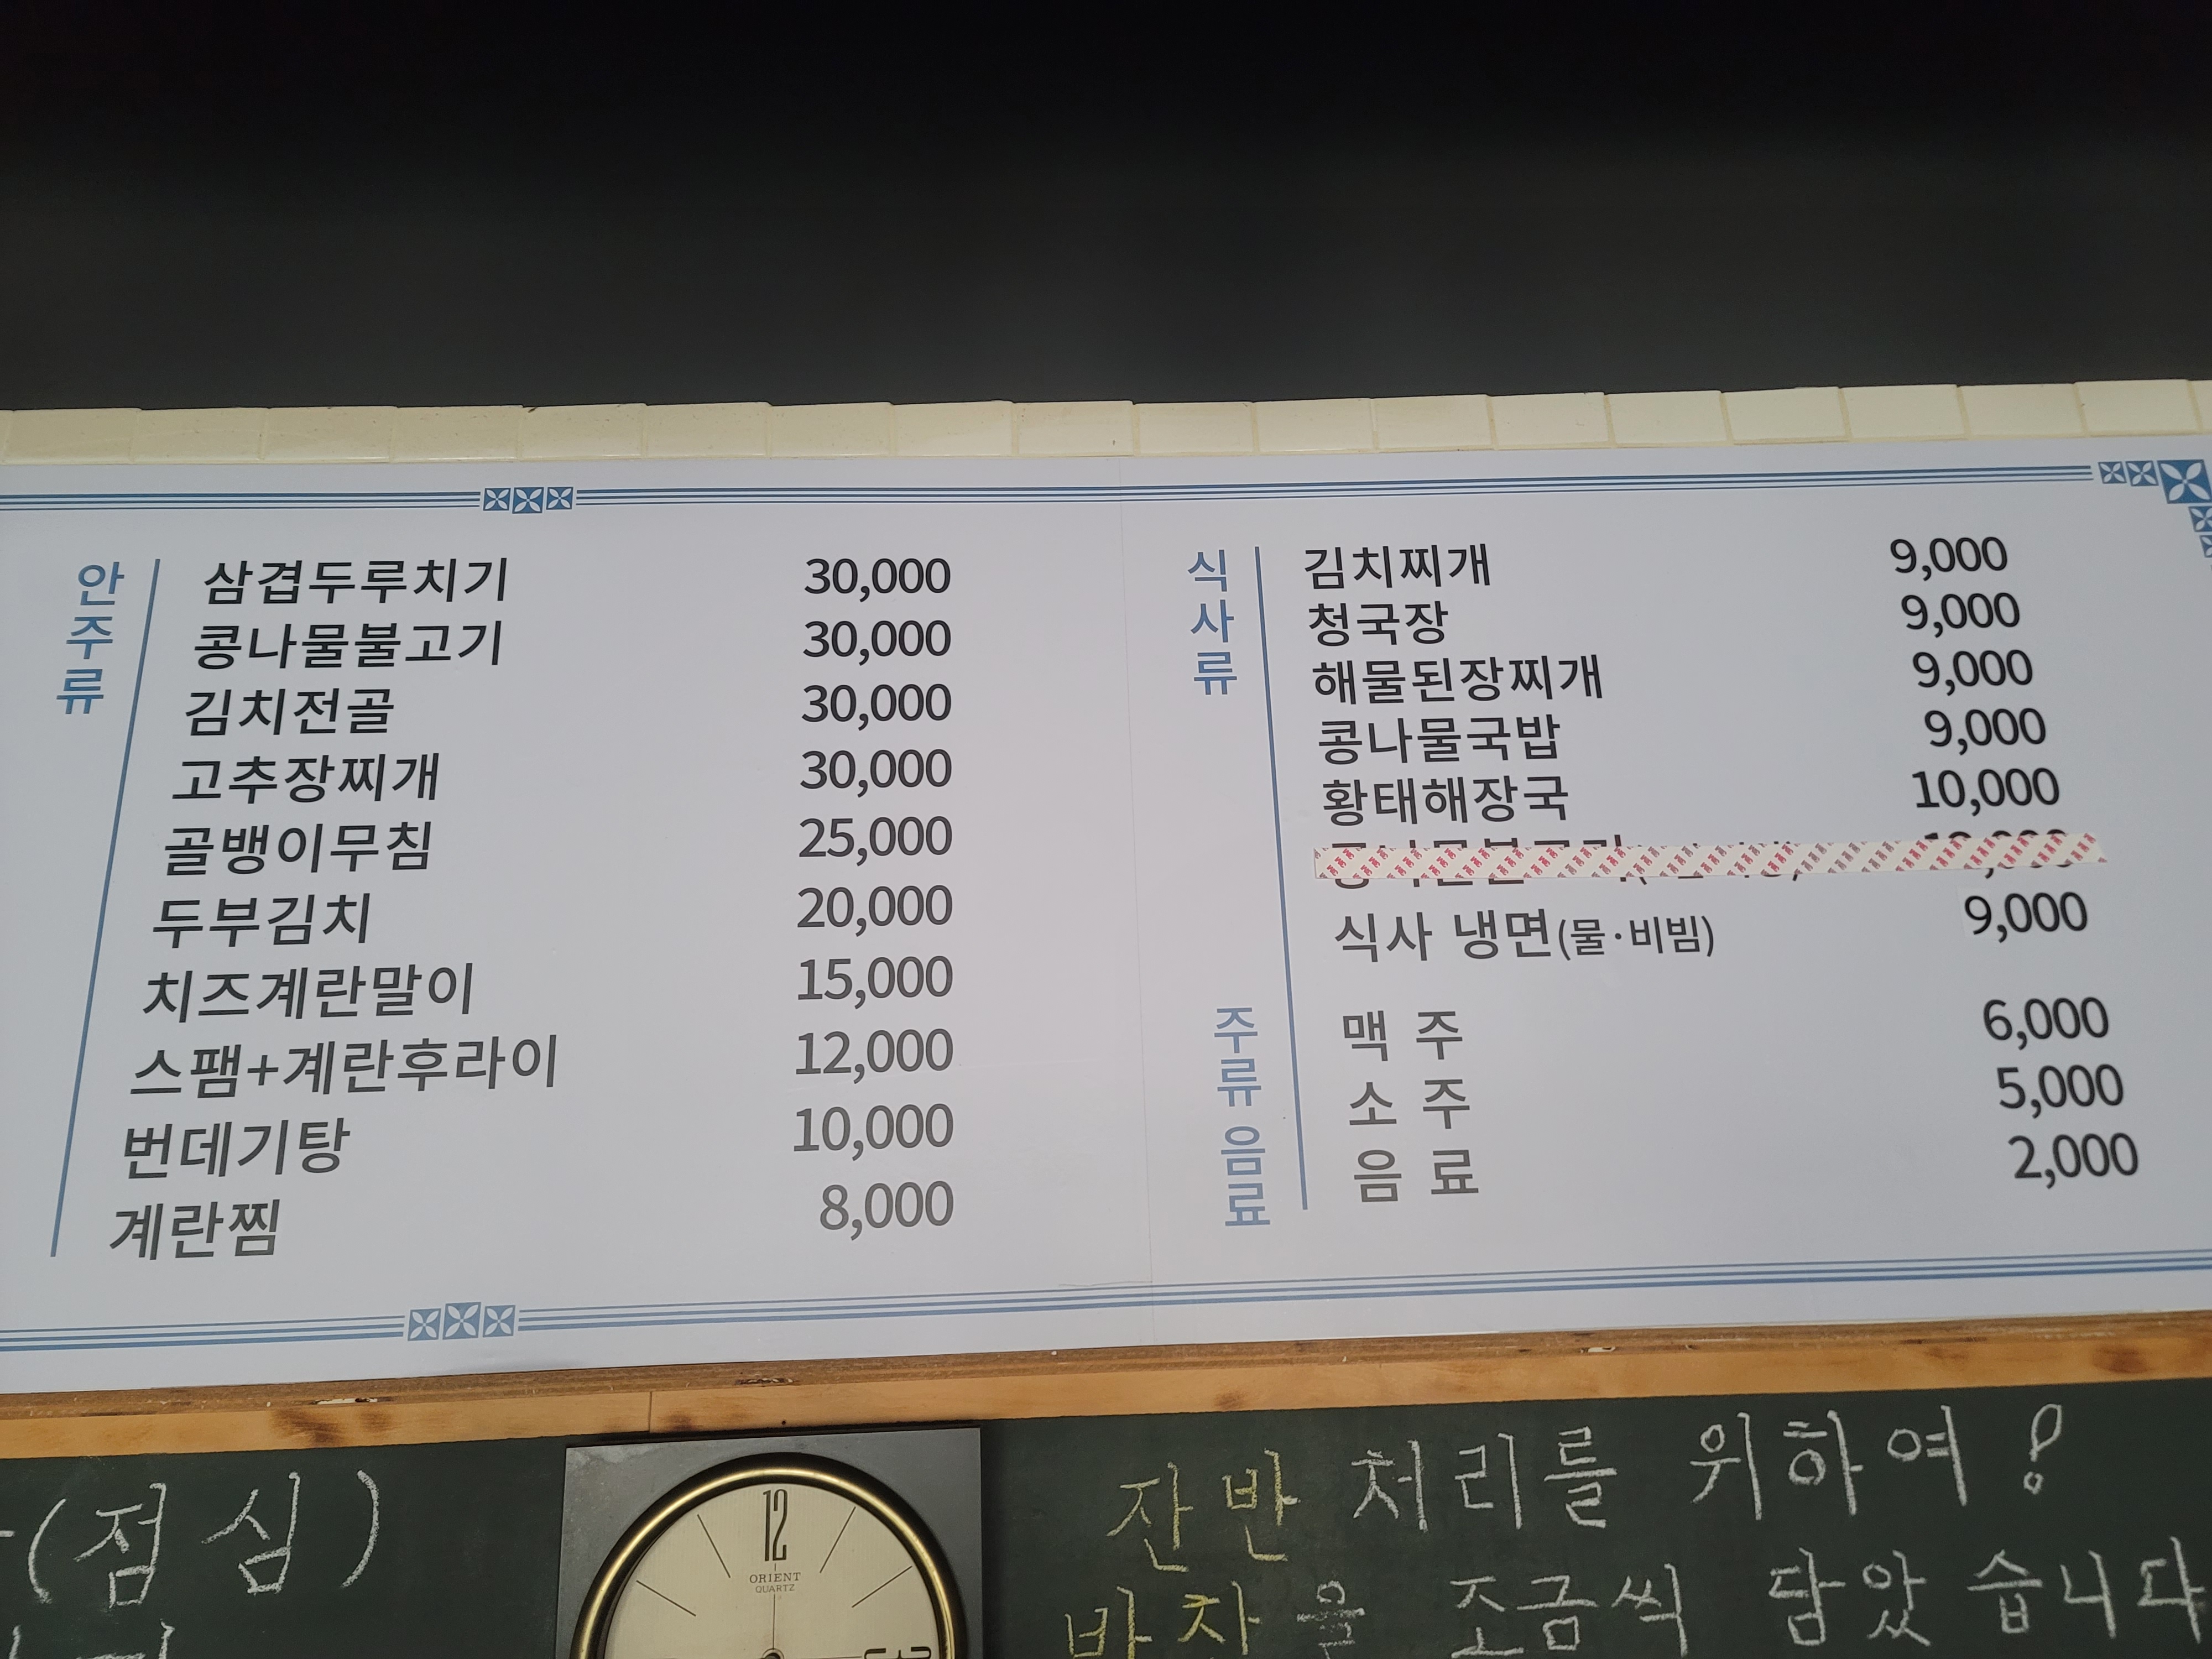 안주류
삼겹두루치기 30,000
콩나물불고기 30,000
김치전골 30,000
고추장찌개 30,000
골뱅이무침 25,000
두부김치 20,000
치즈계란말이 15,000
스팸+계란후라이 12,000
번데기탕 10,000
계란찜 8,000
식사류
김치찌개 9,000
청국장 9,000
해물된장찌개 9,000
콩나물국밥 9,000
황태해장국 10,000
식사 냉면(물·비빔) 9,000
주류 음료
맥 주 6,000
소 주 5,000
음 료 2,000
(점심)
12
ORIENT
QUARTZ
잔반 처리를 위하여!
반찬을 조금씩 담았습니다